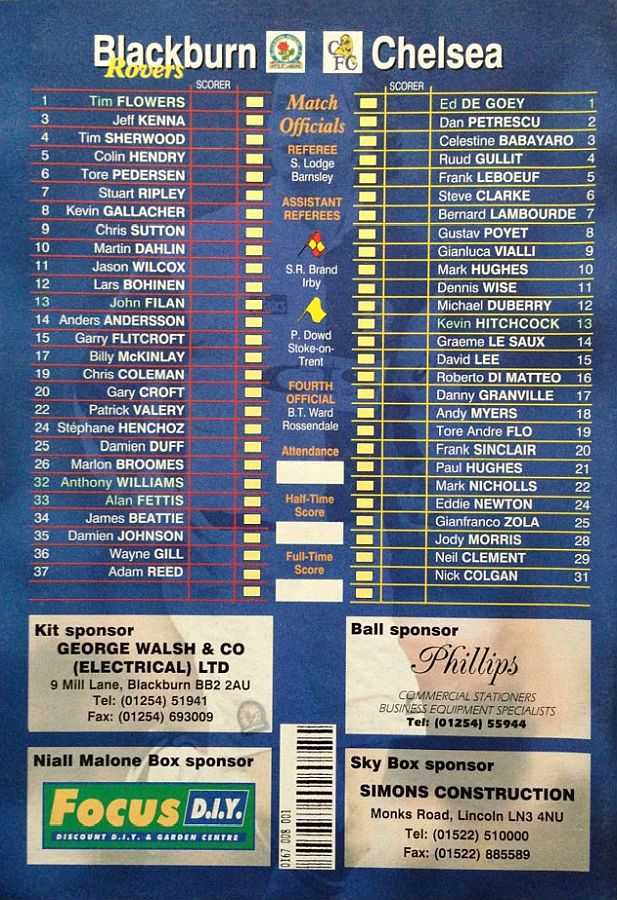 Blackburn
Rovers
SCORER
1 Tim FLOWERS
3 Jeff KENNA
4 Tim SHERWOOD
5 Colin HENDRY
6 Tore PEDERSEN
7 Stuart RIPLEY
8 Kevin GALLACHER
9 Chris SUTTON
10 Martin DAHLIN
11 Jason WILCOX
12 Lars BOHINEN
13 John FILAN
14 Anders ANDERSSON
15 Garry FLITCROFT
17 Billy McKINLAY
19 Chris COLEMAN
20 Gary CROFT
22 Patrick VALERY
24 Stéphane HENCHOZ
25 Damien DUFF
26 Marlon BROOMES
32 Anthony WILLIAMS
33 Alan FETTIS
34 James BEATTIE
35 Damien JOHNSON
36 Wayne GILL
37 Adam REED
Match
Officials
REFEREE
S. Lodge
Barnsley
ASSISTANT
REFEREES
S.R. Brand
Irby
P. Dowd
Stoke-on-
Trent
FOURTH
OFFICIAL
B.T. Ward
Rossendale
Attendance
Half-Time
Score
Full-Time
Score
CFC
Chelsea
SCORER
Ed DE GOEY 1
Dan PETRESCU 2
Celestine BABAYARO 3
Ruud GULLIT 4
Frank LEBOEUF 5
Steve CLARKE 6
Bernard LAMBOURDE 7
Gustav POYET 8
Gianluca VIALLI 9
Mark HUGHES 10
Dennis WISE 11
Michael DUBERRY 12
Kevin HITCHCOCK 13
Graeme LE SAUX 14
David LEE 15
Roberto DI MATTEO 16
Danny GRANVILLE 17
Andy MYERS 18
Tore Andre FLO 19
Frank SINCLAIR 20
Paul HUGHES 21
Mark NICHOLLS 22
Eddie NEWTON 24
Gianfranco ZOLA 25
Jody MORRIS 28
Neil CLEMENT 29
Nick COLGAN 31
Kit sponsor
GEORGE WALSH & CO
(ELECTRICAL) LTD
9 Mill Lane, Blackburn BB2 2AU
Tel: (01254) 51941
Fax: (01254) 693009
Ball sponsor
Phillips
COMMERCIAL STATIONERS
BUSINESS EQUIPMENT SPECIALISTS
Tel: (01254) 55944
Niall Malone Box sponsor
FOCUS D.I.Y.
DISCOUNT D.I.Y. & GARDEN CENTRE
0167 008 001
Sky Box sponsor
SIMONS CONSTRUCTION
Monks Road, Lincoln LN3 4NU
Tel: (01522) 510000
Fax: (01522) 885589